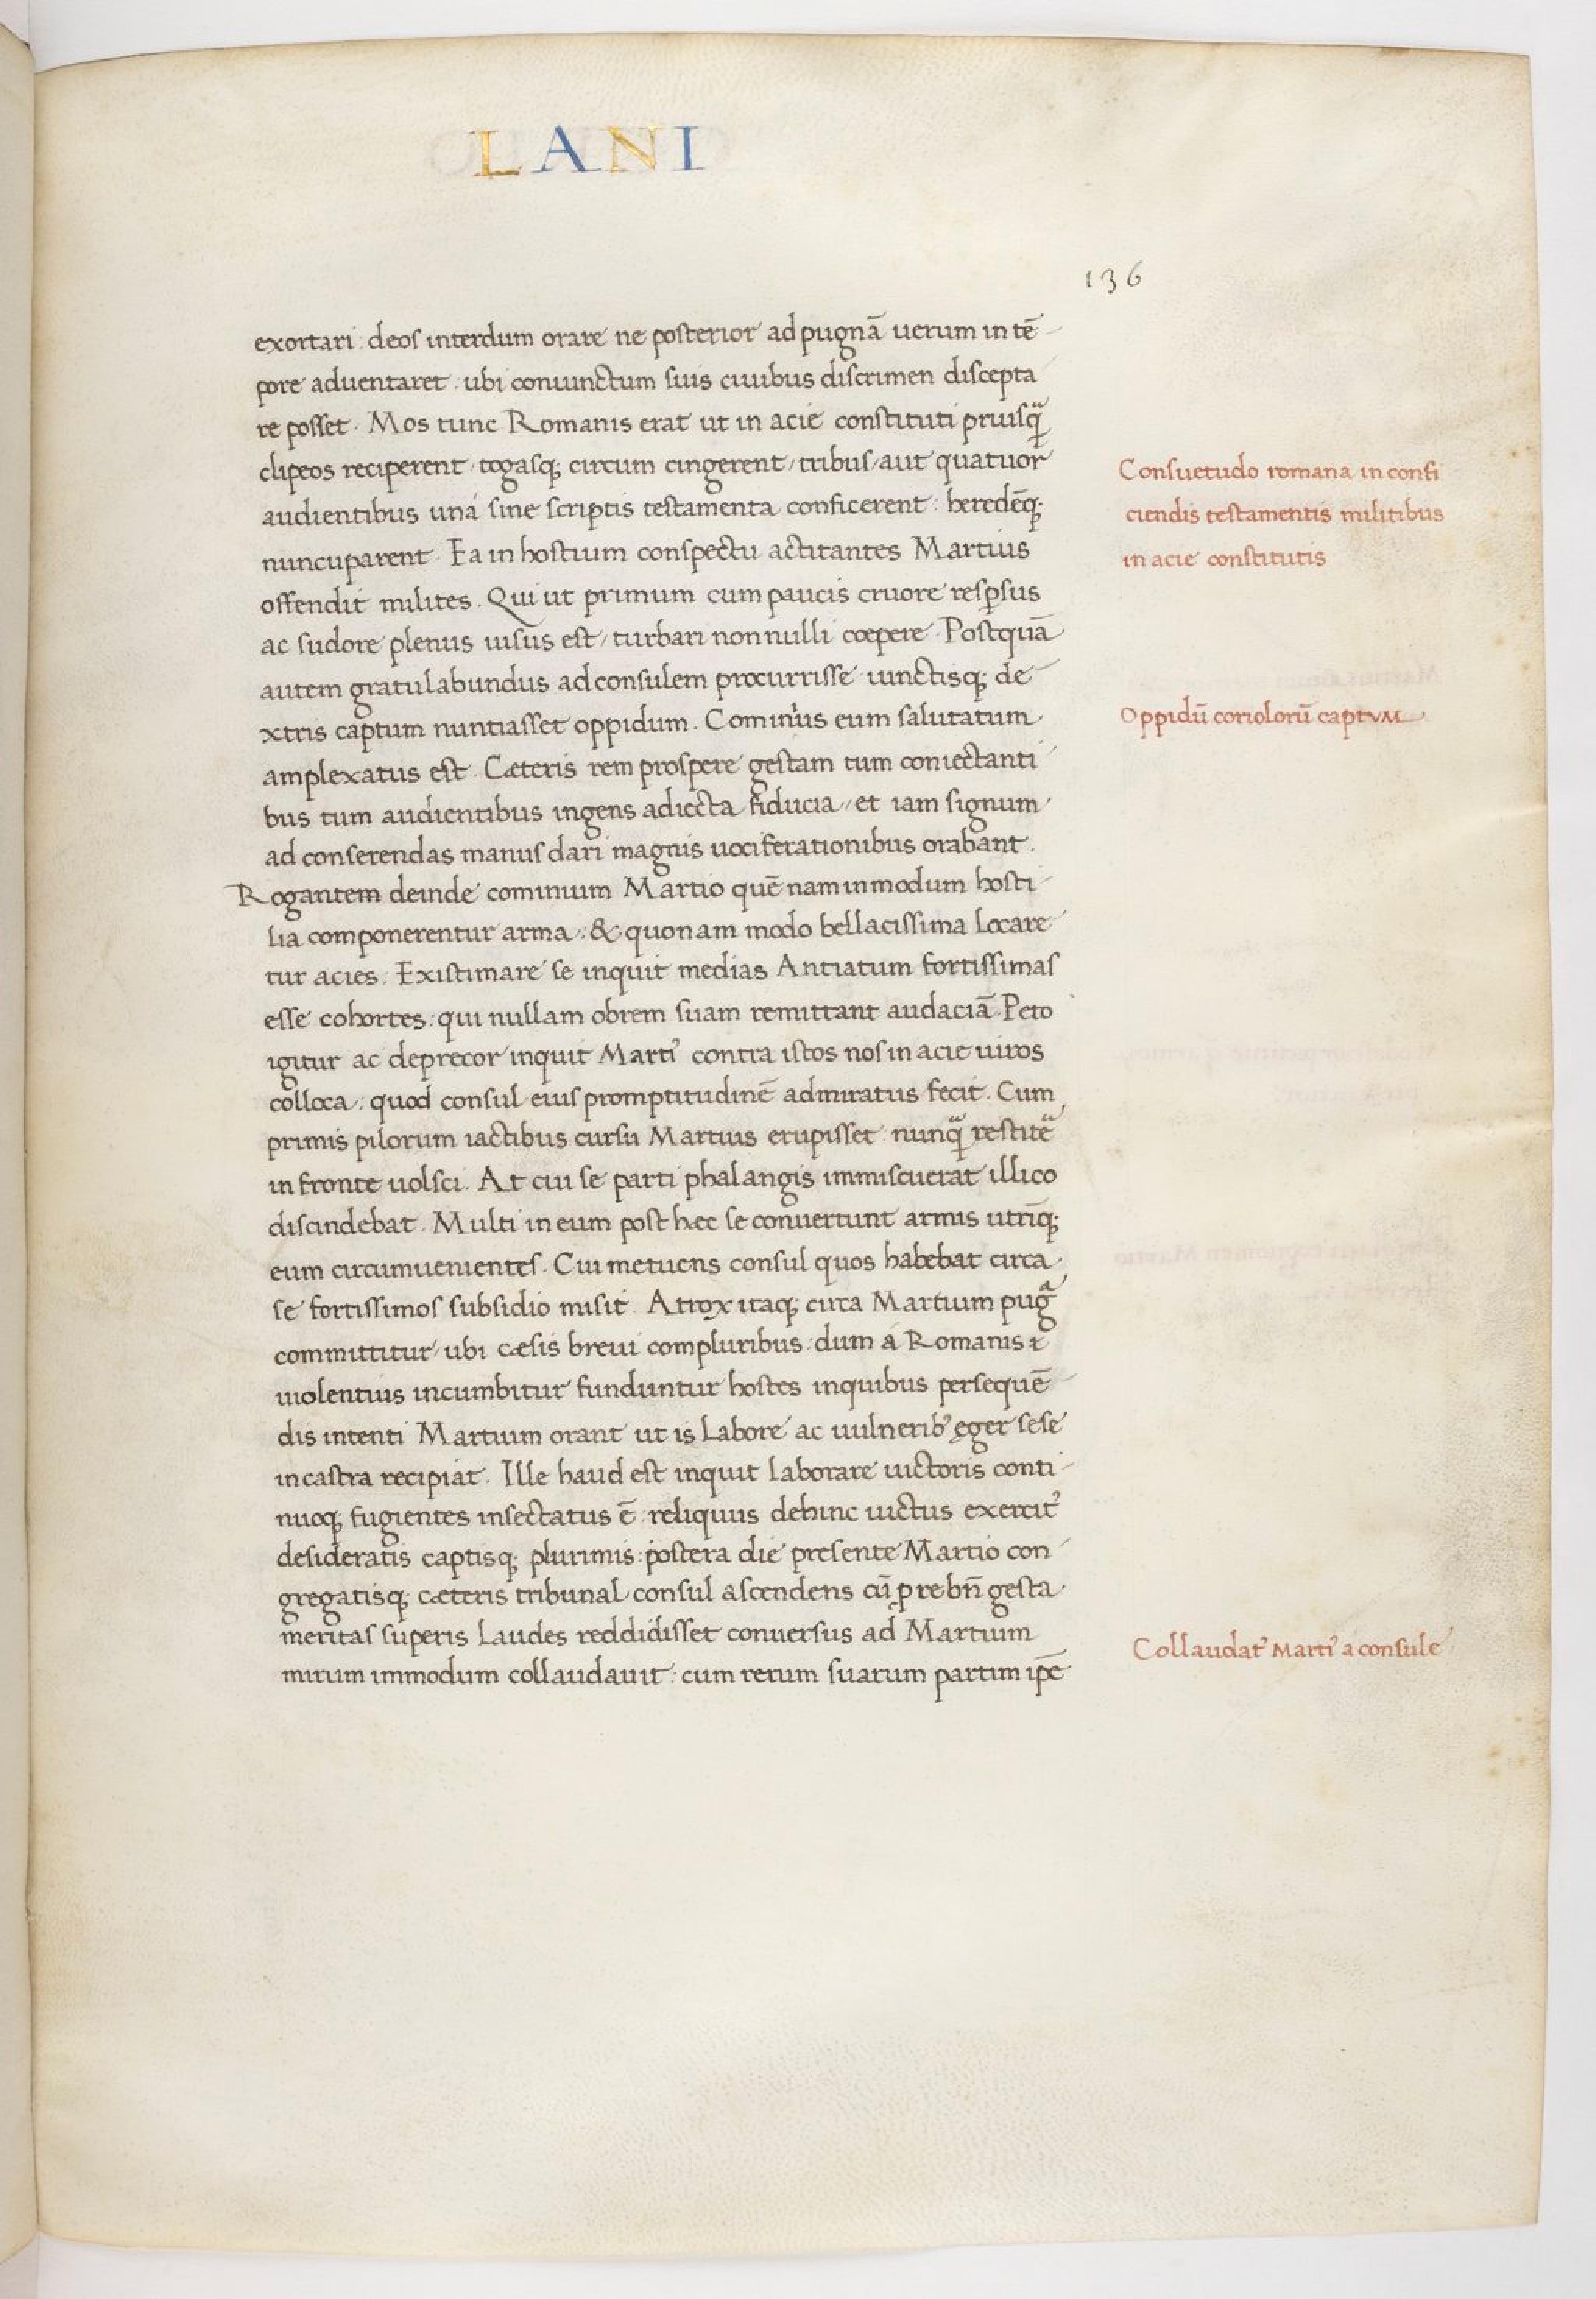 LANI
136
exortari: deos interdum orare ne posterior ad pugnā uerum in tē
pore aduentaret: ubi coniunctum suis ciuibus discrimen discepta
re posset. Mos tunc Romanis erat ut in acie constituti priusq̄
clipeos reciperent, togasq; circum cingerent, tribus, aut quatuor
audientibus unà sine scriptis testamenta conficerent: heredēq;
nuncuparent. Ea in hostium conspectu actitantes Martius
offendit milites. Qui ut primum cum paucis cruore resp̱sus
ac sudore plenus uisus est, turbari nonnulli coepere. Postquā
autem gratulabundus ad consulem procurrisse iunctisq; de
xtris captum nuntiasset oppidum. Cominius eum salutatum
amplexatus est. Cæteris rem prospere gestam tum coniectanti
bus tum audientibus ingens adiecta fiducia, et iam signum
ad conserendas manus dari magnis uociferationibus orabant.
Rogantem deinde cominium Martio quē nam in modum hosti
lia componerentur arma: & quonam modo bellacissima locare
tur acies: Existimare se inquit medias Antiatum fortissimas
esse cohortes: qui nullam obrem suam remittant audaciā. Peto
igitur ac deprecor inquit Marti᾽ contra istos nos in acie uiros
colloca: quod consul eius promptitudinē admiratus fecit. Cum
primis pilorum iactibus cursu Martius erupisset nunq̄ restitē
in fronte uolsci. At cui se parti phalangis immiscuerat illico
discindebat. Multi in eum post hec se conuertunt armis utriq;
eum circumuenientes. Cui metuens consul quos habebat circa
se fortissimos subsidio misit. Atrox itaq; circa Martium pugᵃ
committitur, ubi cæsis breui compluribus: dum à Romanis ⁊
uiolentius incumbitur funduntur hostes inquibus persequē
dis intenti Martium orant ut is labore ac uulnerib᾽ ęger sese
in castra recipiat. Ille haud est inquit laborare uictoris conti
nuoq; fugientes insectatus ē: reliquus dehinc uictus exercit᾽
desideratis captisq; plurimis: postera die presente Martio con
gregatisq; cæteris tribunal consul ascendens cū p re bn̄ gesta
meritas superis laudes reddidisset conuersus ad Martium
mirum immodum collaudauit: cum rerum suarum partim ip̄e
Consuetudo romana in confi
ciendis testamentis militibus
in acie constitutis
Oppidū coriolorū captVM
Collaudat᾽ Marti᾽ a consule